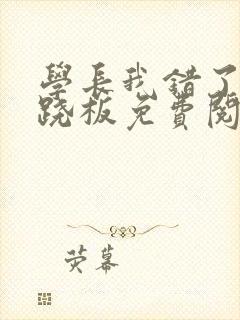 學長我錯了
跷板免費閱
荧幕